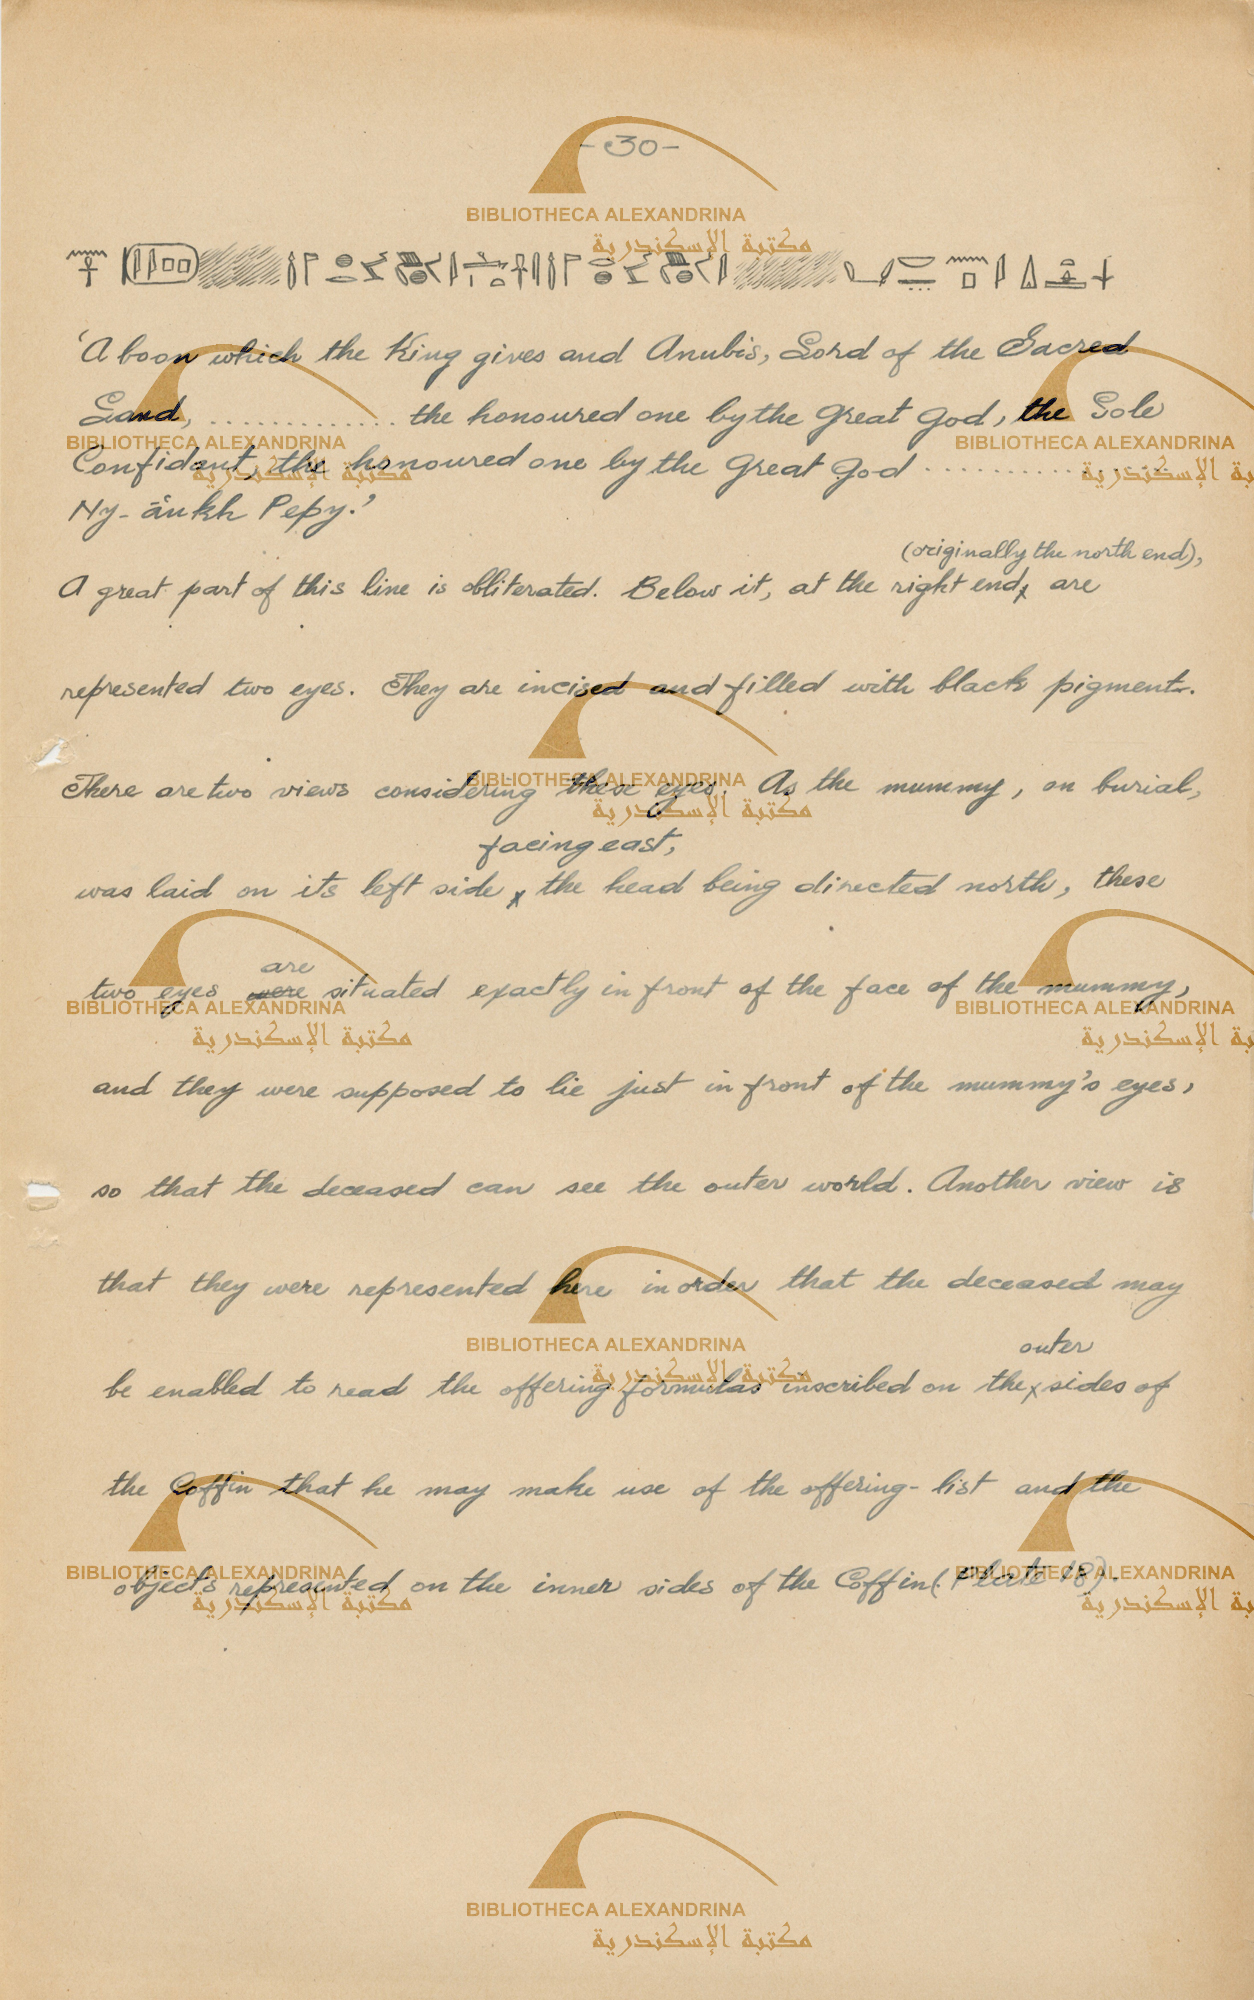 -30-
'A boon which the King gives and Anubis, Lord of the Sacred
Land, .............. the honoured one by the Great God, the Sole
Confidant, the honoured one by the Great God ..........
Ny-ānkh Pepy.'
(originally the north end),
A great part of this line is obliterated. Below it, at the right end, are
represented two eyes. They are incised and filled with black pigment.
There are two views considering these eyes. As the mummy, on burial,
facing east,
was laid on its left side x the head being directed north, these
are
two eyes were situated exactly in front of the face of the mummy,
and they were supposed to lie just in front of the mummy's eyes,
so that the deceased can see the outer world. Another view is
that they were represented here in order that the deceased may
outer
be enabled to read the offering formulas inscribed on the x sides of
the Coffin that he may make use of the offering-list and the
objects represented on the inner sides of the Coffin (Plate 18).
BIBLIOTHECA ALEXANDRINA
مكتبة الإسكندرية